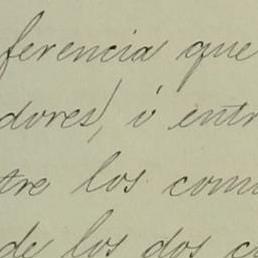 ferencia que
dores), ó entr
tre los com
de los dos c